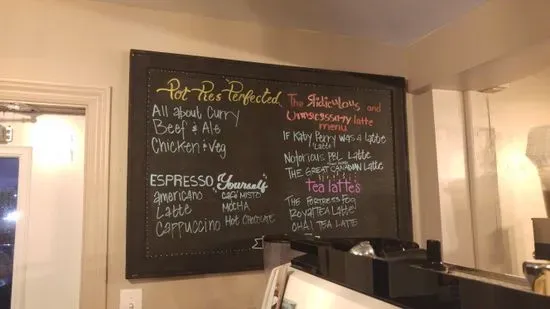 Pot Pies Perfected
All about Curry
Beef & Ale
Chicken & Veg
ESPRESSO Yourself
americano
Latte
Cappuccino
Café Misto
MOCHA
Hot Chocolate
The Ridiculous and
Unnecessary latte
menu
If Katy Perry was a Latte
Latte
Notorious PBL Latte
THE GREAT CANADIAN Latte
tea latte's
THE FORTRESS FOG
Royal TEA Latte
CHAI TEA LATTE